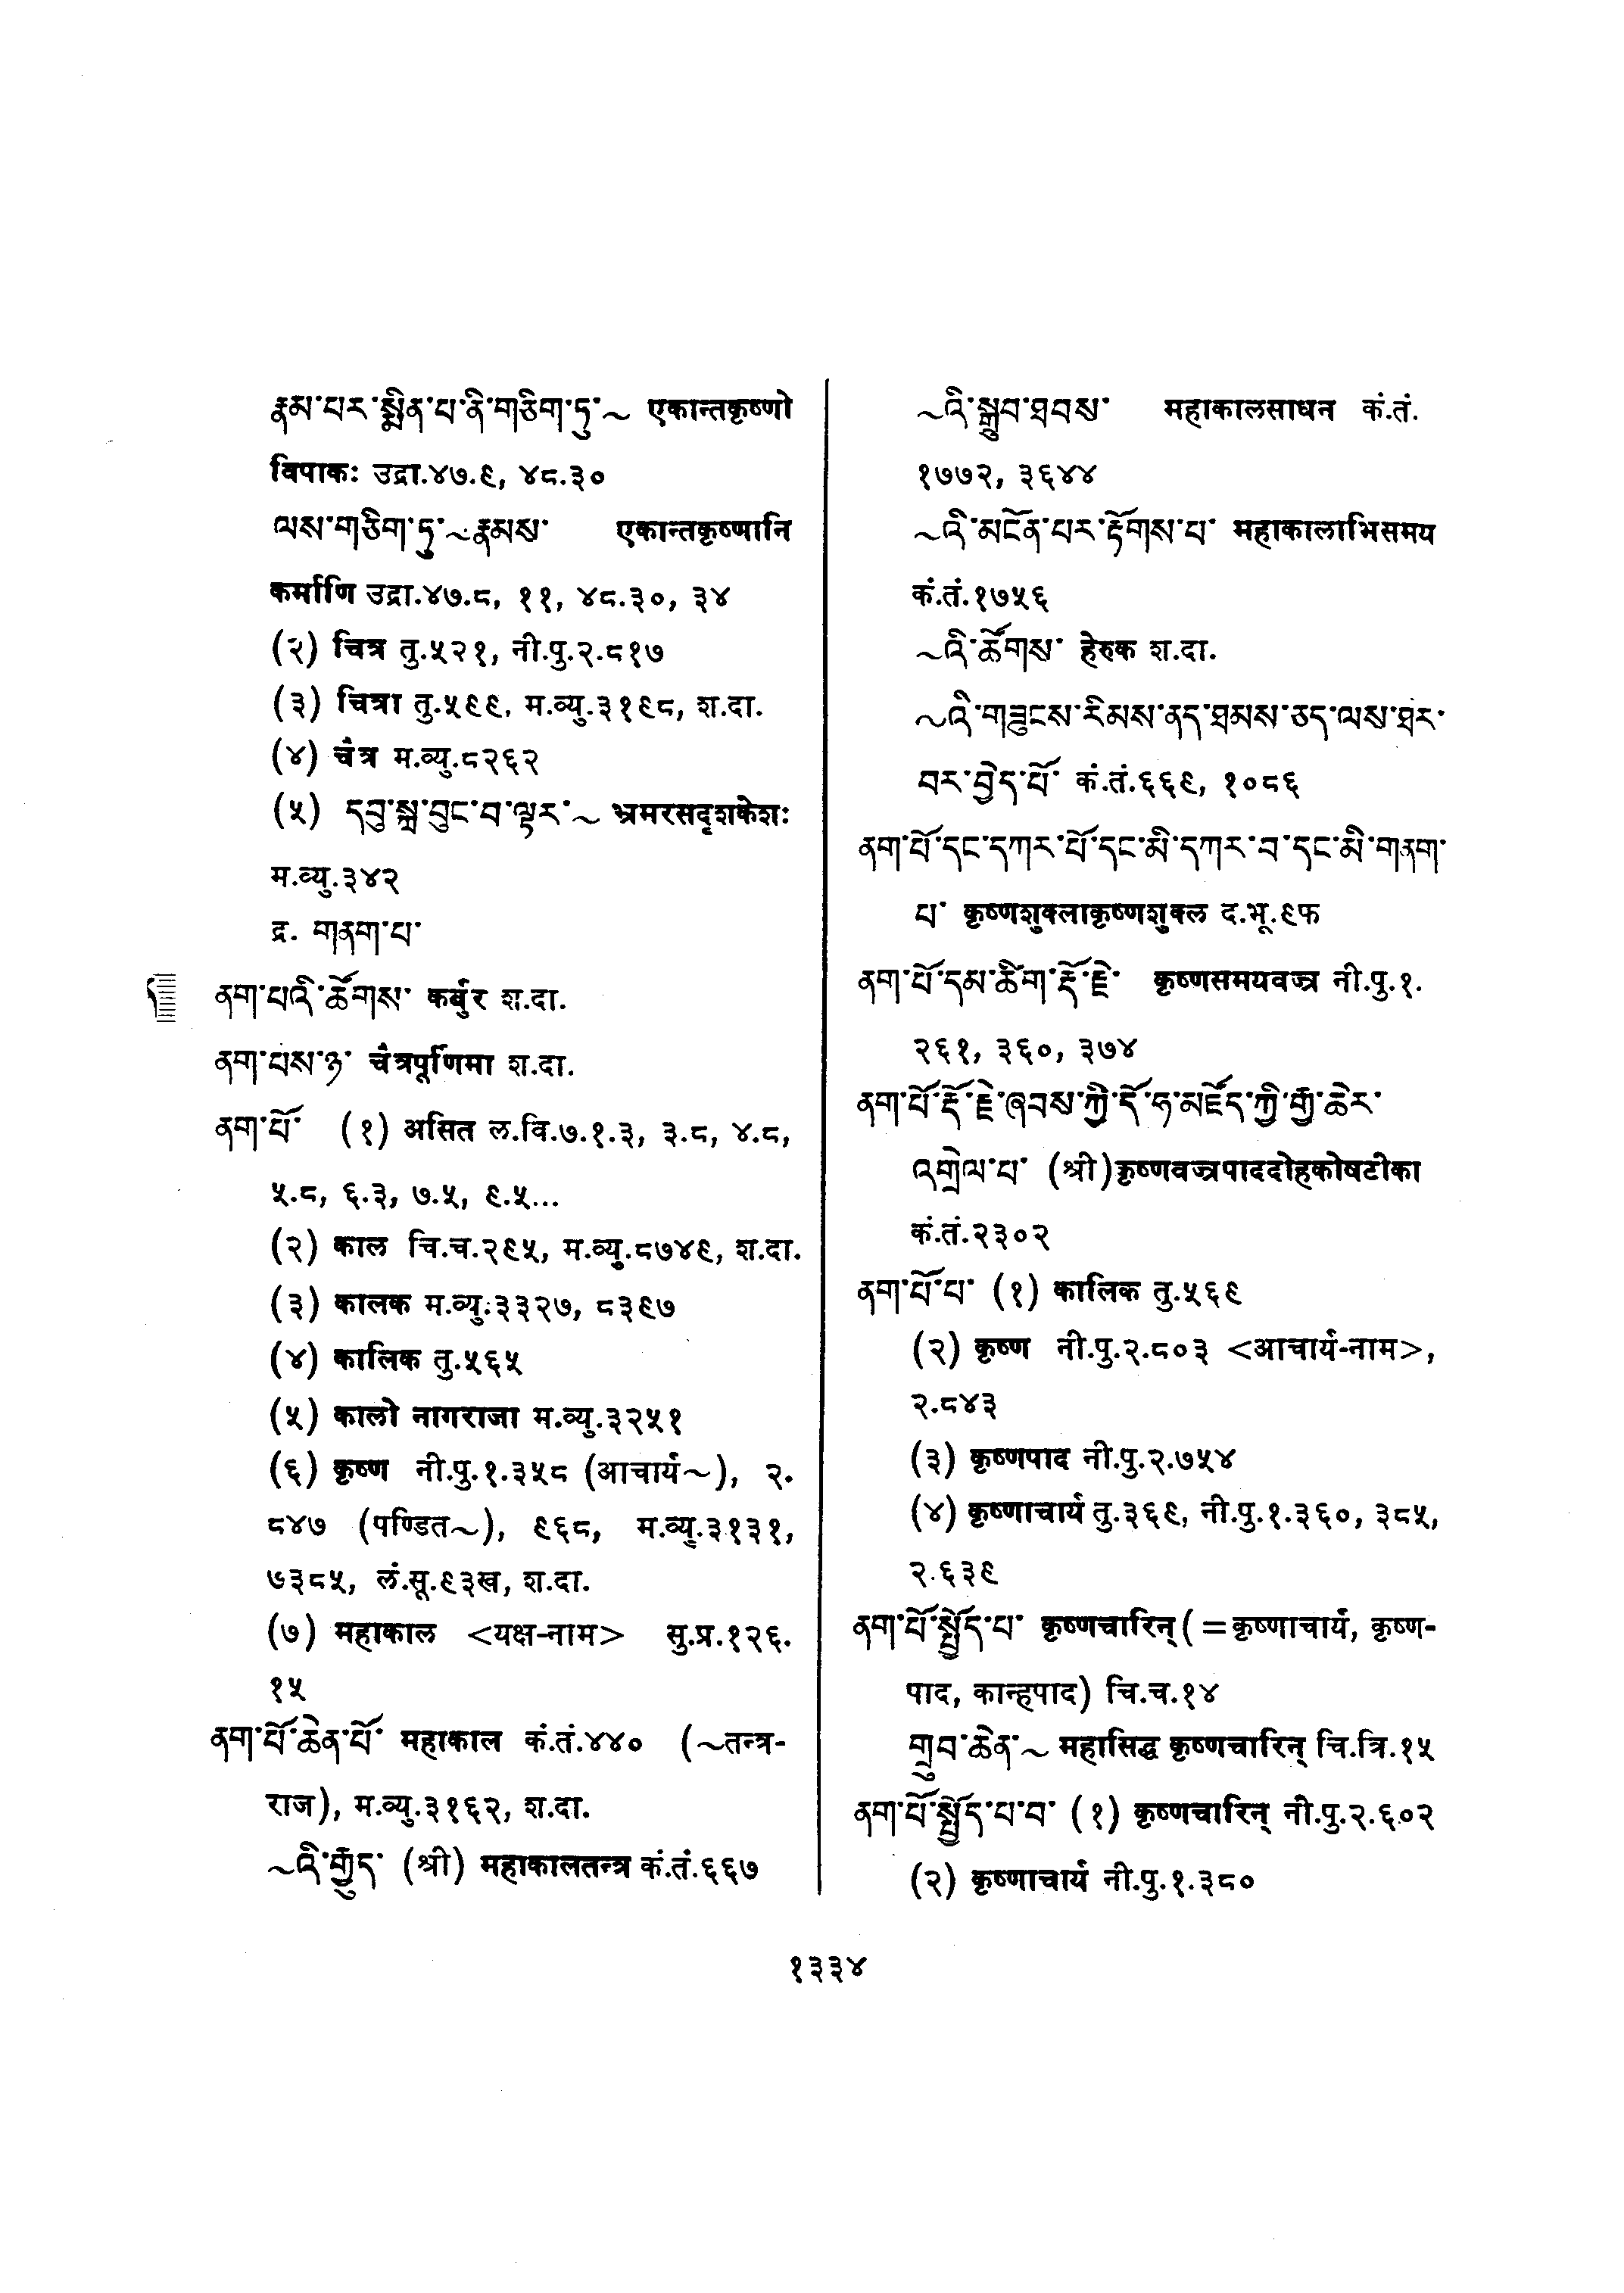 རྣམ་པར་སྨིན་པ་ནི་གཅིག་ཏུ་~ एकान्तकृष्णो
विपाकः उद्रा.४७.९, ४८.३०
ལས་གཅིག་ཏུ་~རྣམས་ एकान्तकृष्णानि
कर्माणि उद्रा.४७.८, ११, ४८.३०, ३४
(२) चित्र तु.५२१, नी.पु.२.८१७
(३) चित्रा तु.५९९, म.व्यु.३१९८, श.दा.
(४) चैत्र म.व्यु.८२६२
(५) དབུ་སྐྲ་བུང་བ་ལྟར་~ भ्रमरसदृशकेशः
म.व्यु.३४२
द्र. གནག་པ་
ནག་པའི་ཚོགས་ कर्बुर श.दा.
ནག་པས་ཉ་ चैत्रपूर्णिमा श.दा.
ནག་པོ་ (१) असित ल.वि.७.१.३, ३.८, ४.८,
५.८, ६.३, ७.५, ९.५...
(२) काल चि.च.२९५, म.व्यु.८७४९, श.दा.
(३) कालक म.व्यु.३३२७, ८३९७
(४) कालिक तु.५६५
(५) कालो नागराजा म.व्यु.३२५१
(६) कृष्ण नी.पु.१.३५८ (आचार्य~), २.
८४७ (पण्डित~), ९६८, म.व्यु.३१३१,
७३८५, लं.सू.९३ख, श.दा.
(७) महाकाल <यक्ष-नाम> सु.प्र.१२६.
१५
ནག་པོ་ཆེན་པོ་ महाकाल कं.तं.४४० (~तन्त्र-
राज), म.व्यु.३१६२, श.दा.
~འི་རྒྱུད་ (श्री) महाकालतन्त्र कं.तं.६६७
~འི་སྒྲུབ་ཐབས་ महाकालसाधन कं.तं.
१७७२, ३६४४
~འི་མངོན་པར་རྟོགས་པ་ महाकालाभिसमय
कं.तं.१७५६
~འི་ཚོགས་ हेरुक श.दा.
~འི་གཟུངས་རིམས་ནད་ཐམས་ཅད་ལས་ཐར་
བར་བྱེད་པོ་ कं.तं.६६९, १०८६
ནག་པོ་དང་དཀར་པོ་དང་མི་དཀར་བ་དང་མི་གནག་
པ་ कृष्णशुक्लाकृष्णशुक्ल द.भू.९फ
ནག་པོ་དམ་ཚིག་རྡོ་རྗེ་ कृष्णसमयवज्र नी.पु.१.
२६१, ३६०, ३७४
ནག་པོ་རྡོ་རྗེ་ཞབས་ཀྱི་དོ་ཧ་མཛོད་ཀྱི་རྒྱ་ཆེར་
འགྲེལ་པ་ (श्री)कृष्णवज्रपाददोहकोषटीका
कं.तं.२३०२
ནག་པོ་པ་ (१) कालिक तु.५६९
(२) कृष्ण नी.पु.२.८०३ <आचार्य-नाम>,
२.८४३
(३) कृष्णपाद नी.पु.२.७५४
(४) कृष्णाचार्य तु.३६९, नी.पु.१.३६०, ३८५,
२.६३९
ནག་པོ་སྤྱོད་པ་ कृष्णचारिन्(=कृष्णाचार्य, कृष्ण-
पाद, कान्हपाद) चि.च.१४
གྲུབ་ཆེན་~ महासिद्ध कृष्णचारिन् चि.त्रि.१५
ནག་པོ་སྤྱོད་པ་བ་ (१) कृष्णचारिन् नी.पु.२.६०२
(२) कृष्णाचार्य नी.पु.१.३८०
१३३४